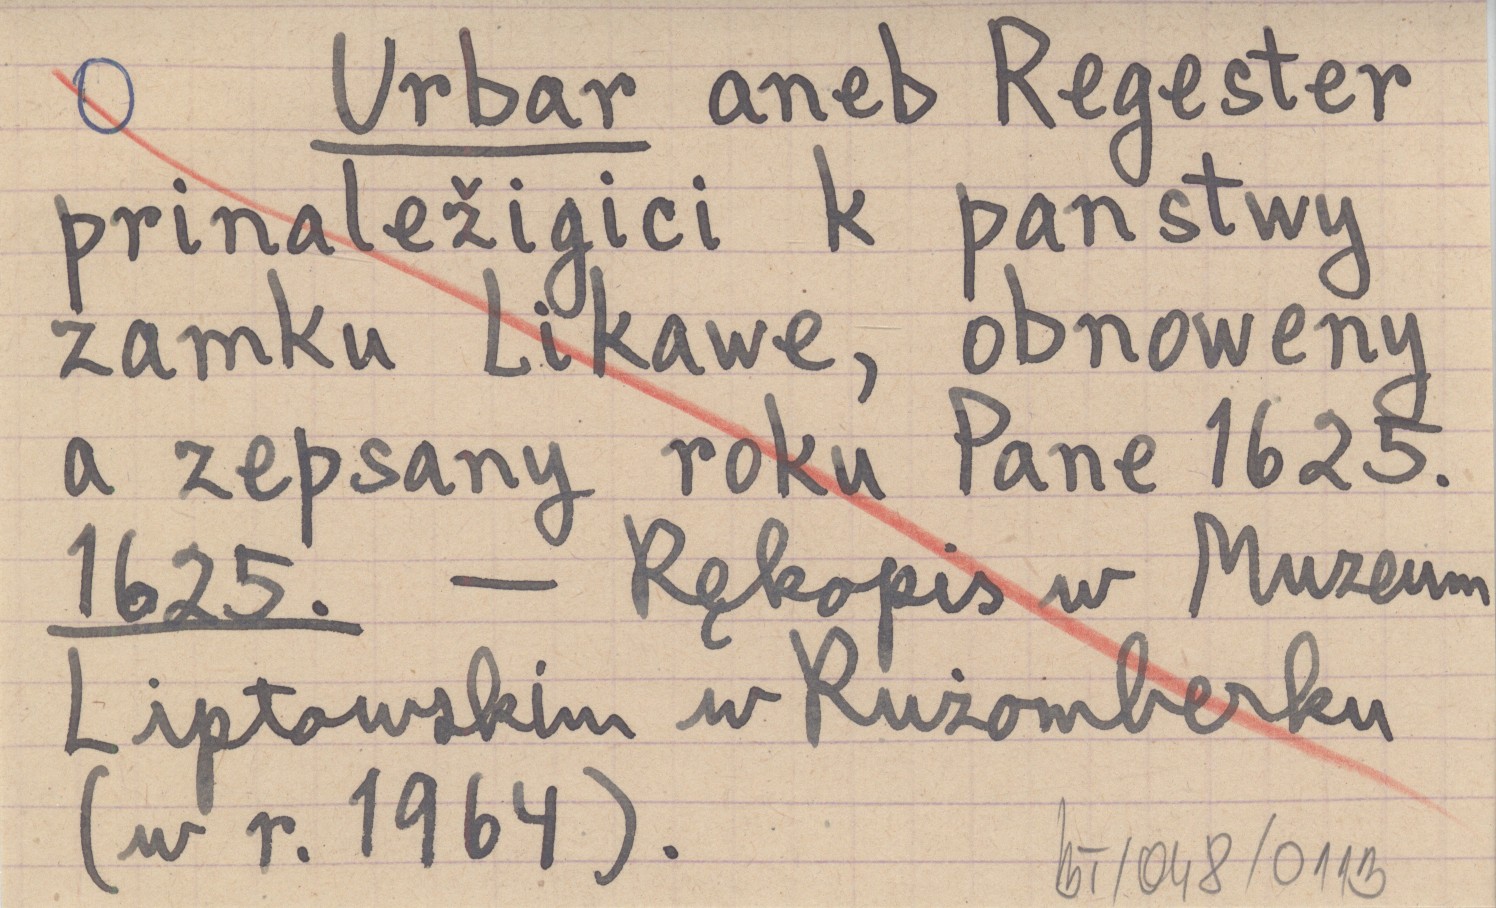 O Urbar aneb Regester
prinaležigici k panstwy
zamku Likawe, obnoweny
a zepsany roku Pane 1625.
1625. — Rękopis w Muzeum
Liptowskim w Rużomberku
(w r. 1964).
/048/0113